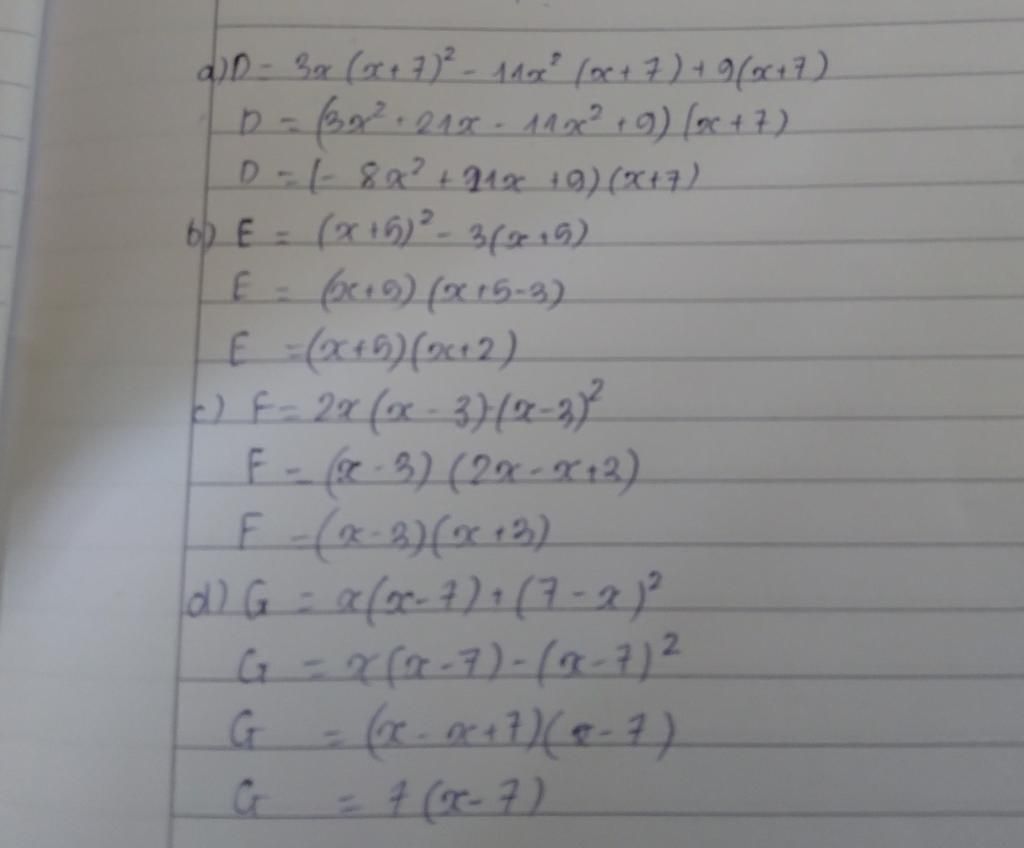 a) D = 3x (x+7)² - 11x² (x+7) + 9(x+7)
D = (3x² + 21x - 11x² + 9) (x+7)
D = (- 8x² + 21x + 9) (x+7)
b) E = (x+5)² - 3(x+5)
E = (x+5) (x+5-3)
E = (x+5) (x+2)
c) F = 2x (x - 3) - (x-3)²
F = (x-3) (2x - x+3)
F = (x-3) (x+3)
d) G = x(x-7) + (7-x)²
G = x(x-7) - (x-7)²
G = (x - x+7) (x-7)
G = 7 (x-7)